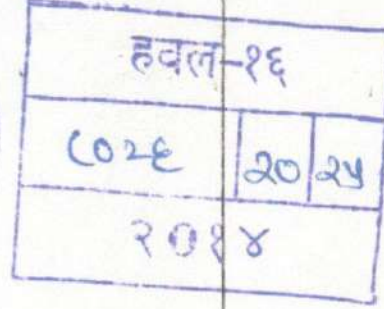 हवल-१६
८०२६ २० २५
२०१४